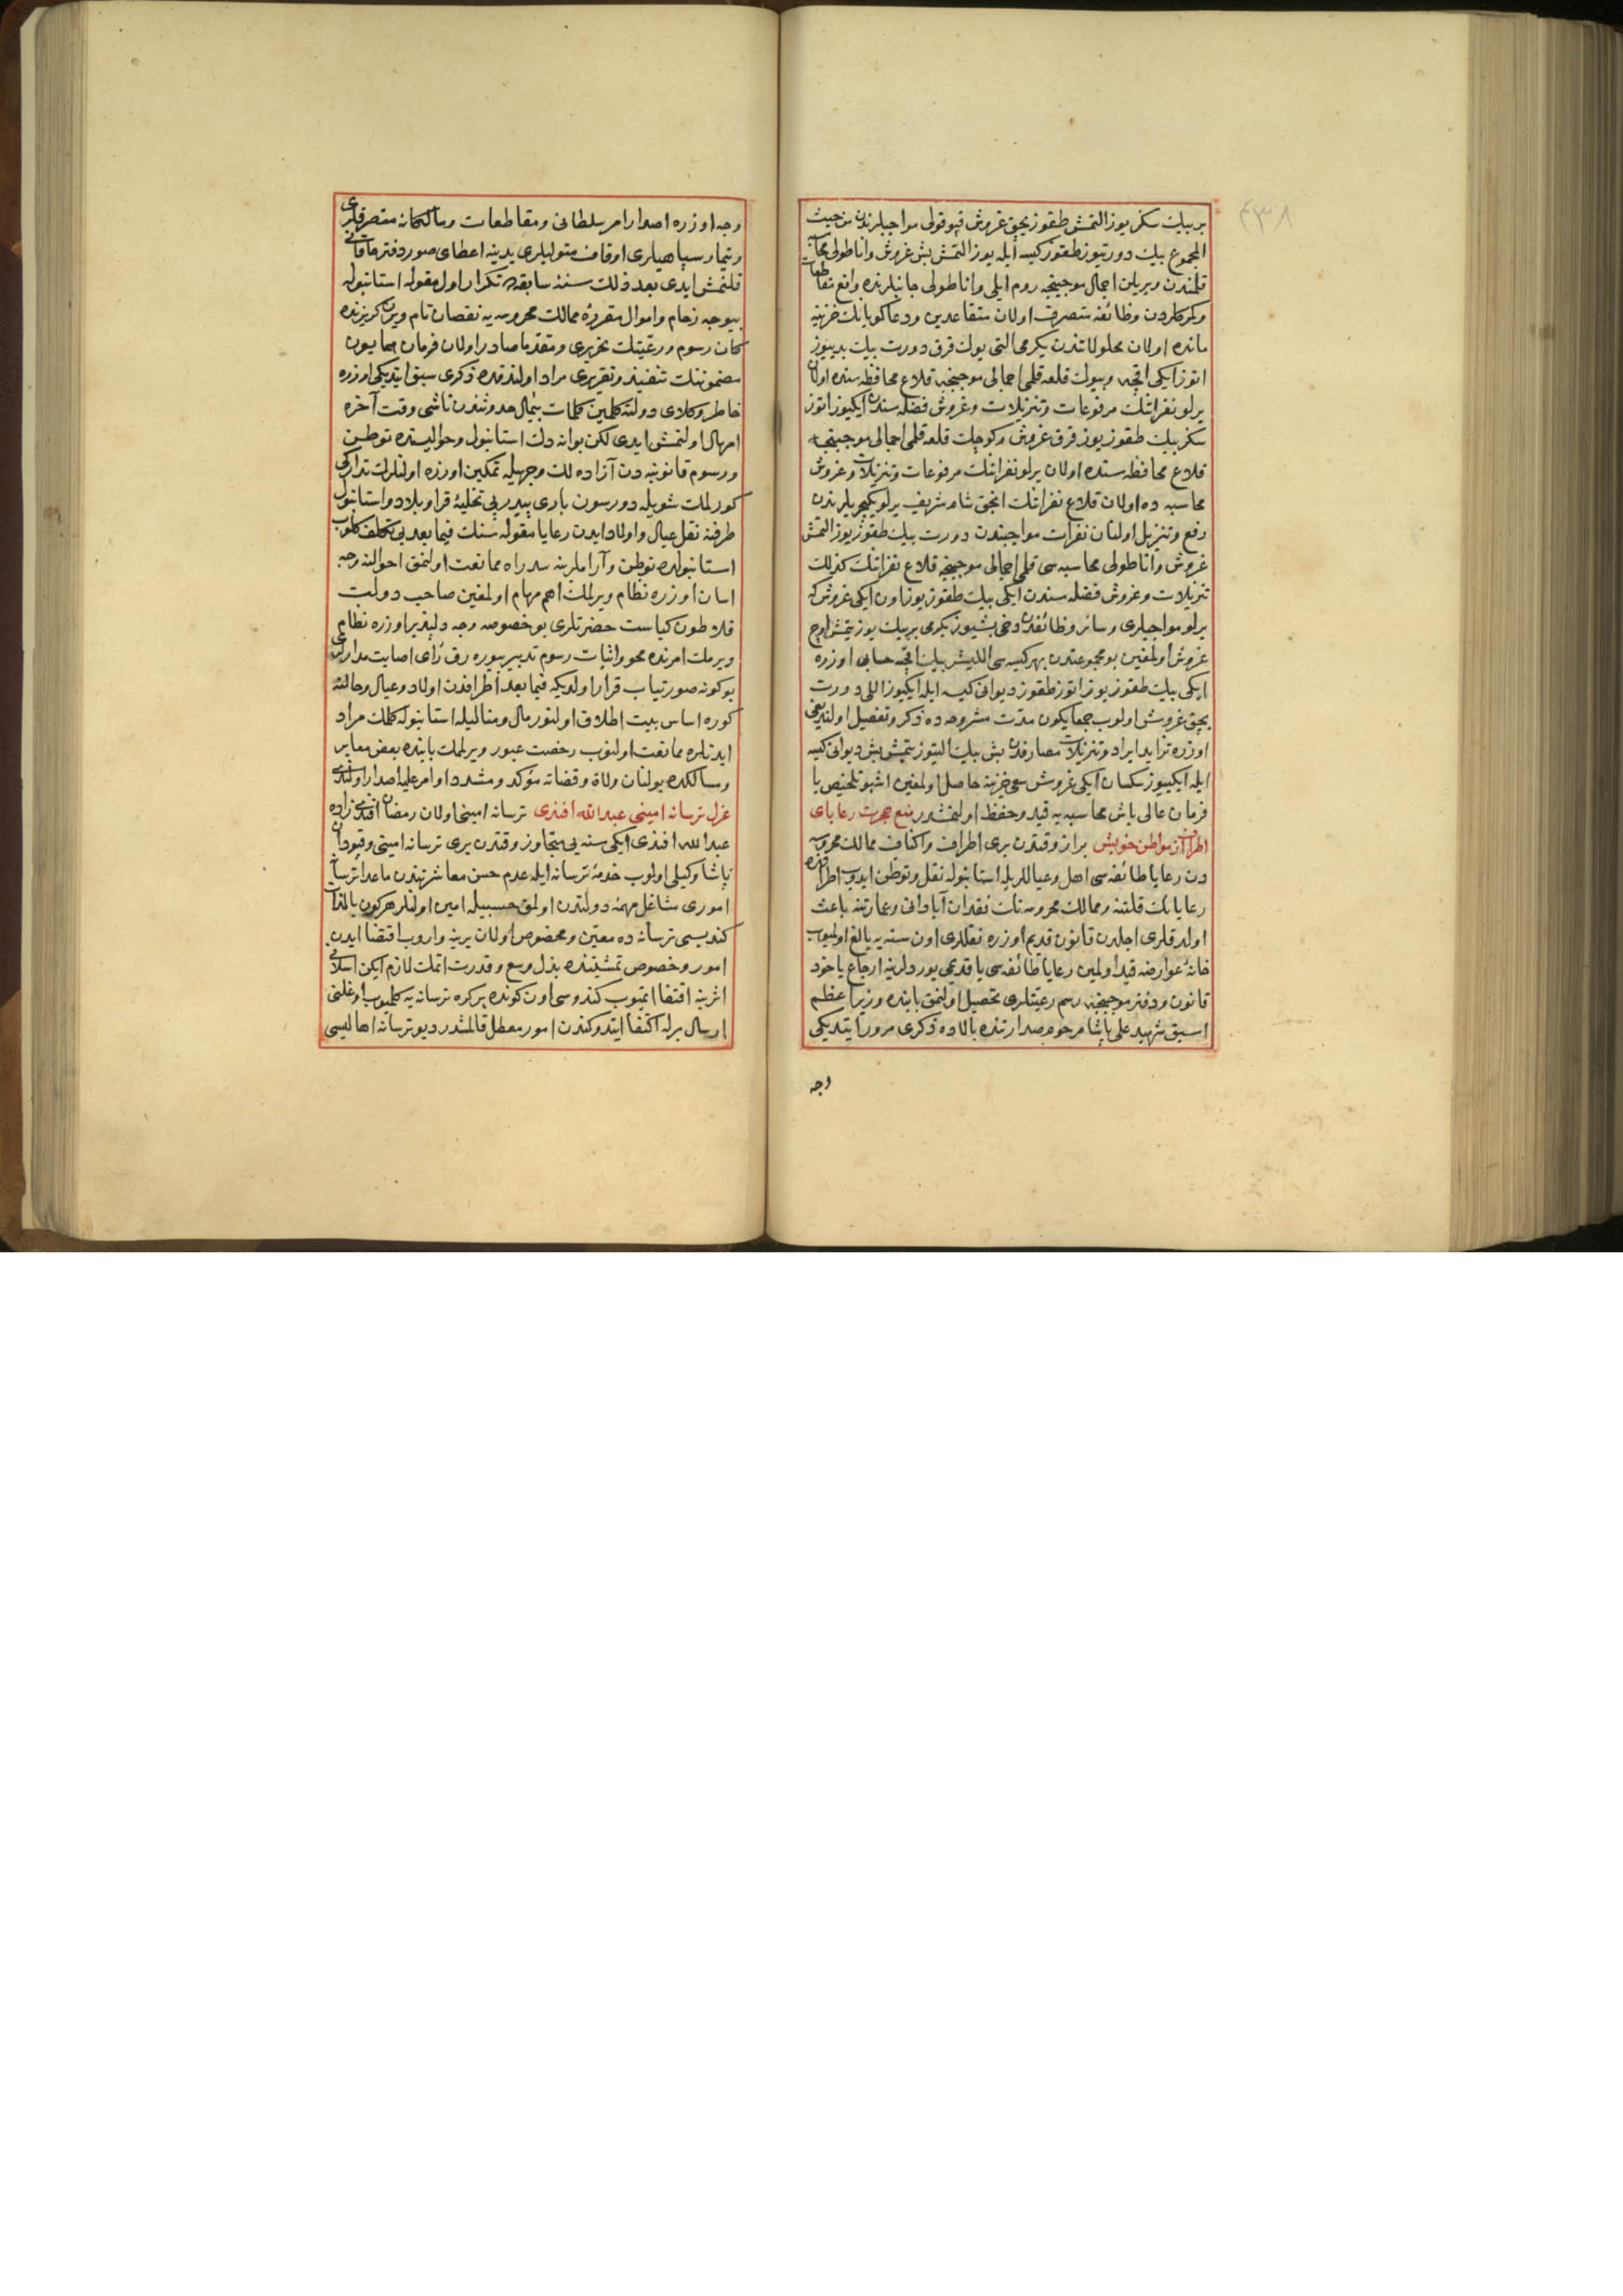 ٤٣٨
بر بيك سكز يوز التمش طقوز بچق غروش قپو قولى مواجبلرندن من حيث
المجموع بيك دورتيوز طقوز كيسه ايله يوز التمش بش غروش واناطولى محاسبه
قلمندن ويريلن اجمال موجبنجه روم ايلى واناطولى جانبلرنده واقع مقاطعات
وكمركلردن وظائفه متصرف اولان متقاعدين ودعاكويانك خزينه
مانده اولان محلولاتندن يكرمى التى يوك قرق دورت بيك يديوز
اتوز ايكى اقچه وبيوك قلعه قلمى اجمالى موجبنجه قلاع محافظه سنده اولان
يرلو نفراتنك مرفوعات وتنزيلات وغروش فضله سندن ايكيوز اتوز
سكز بيك طقوز يوز قرق غروش وكوچك قلعه قلمى اجمالى موجبنجه
قلاع محافظه سنده اولان يرلو نفراتنك مرفوعات وتنزيلات وغروش
محاسبه ده اولان قلاع نفراتنك انجق شام شريف يرلو يكيچريلرندن
رفع وتنزيل اولنان نفرات مواجبندن دورت بيك طقوز يوز التمش
غروش واناطولى محاسبه سى قلمى اجمالى موجبنجه قلاع نفراتنك كذلك
تنزيلات وغروش فضله سندن ايكى بيك طقوز يوز اون ايكى غروش كه
يرلو مواجبلرى وسائر وظائفدن دخى بشيوز يكرمى بر بيك يوز يتمش اوچ
غروش اولمغين بو مجموعتدن بهر كيسه سى اللیشر بيك اقچه حسابى اوزره
ايكى بيك طقوز يوز اتوز طقوز ديوانى كيسه ايله ايكيوز اللى دورت
بچق غروش اولوب جمعا يكون مدت مشروحه ده ذكر وتفصيل اولنديغى
اوزره تزايد ايراد وتنزيلات مصارفدن بش بيك اليتوز يتمش بش ديوانى كيسه
ايله ايكييوز سكسان ايكى غروش سعى خزينه حاصل اولمغين اشبو تلخيص با
فرمان عالى باش محاسبه يه قيد وحفظ اولنمشدر منع هجرت رعاياى
اطراف از مواطن خويش براز وقتدن برى اطراف واكناف ممالك محروسه
دن رعايا طائفه سى اهل وعياللريله استانبوله نقل وتوطن ايدوب اطرافده
رعايانك قلتنه وممالك محروسه نك نقدان آبادانى وعمارتنه باعث
اولدقلرى اجلدن قانون قديم اوزره نقللرى اون سنه يه بالغ اولميوب
خانه عوارضه قيد اولمين رعايا طائفه سى يا قديمى يوردلرينه ارجاع ياخود
قانون ودفتر موجبنجه رسم رعيتلرى تحصيل اولنمق بابنده وزير اعظم
اسبق شهيد على پاشا مرحوم صدارتنده بالاده ذكرى مرور ايتديكى
وجه
وجه اوزره اصدار امر سلطانى ومقاطعات ومالكانه متصرفلرى
وتيمار سپاهيلرى اوقاف متوليلرى يدينه اعطاى صور دفتر خاقانى
قلنمش ايدى بعد ذلك سنه سابقه ده تكرار اول مقوله استانبوله
بيوجه زحام واموال مقرره ممالك محروسه يه نقصان تام ويرن كريزنده
كان رسوم ورعيتلك تحريرى ومقدما صادر اولان فرمان همايون
مضموننك تنفيذ وتقريرى مراد اولندقده ذكرى سبق ايتديكى اوزره
خاطر وكلاى دولته كلمين كلمات بيمال حدوثندن ناشى وقت آخره
امهال اولنمش ايدى لكن بوانه دك استانبول وحواليسنده توطن
ورسوم قانونيه دن آزاده لك وجهيله تمكين اوزره اولنلرك تداركى
كورلمك شويله دورسون بارى پيدرپى تخليه قرا وبلاد واستانبول
طرفنه نقل عيال واولاد ايدن رعايا مقوله سنك فيما بعد بى تكلف كلوب
استانبولده توطن وآراملرينه سد راه ممانعت اولنمق احوالنه وجه
اسان اوزره نظام ويرلمك اهم مهام اولمغين صاحب دولت
فلاطون كياست حضرتلرى بو خصوصه وجه دلپذير اوزره نظام
ويرمك امرنده محو واثبات رسوم تدبير بيوره رق رأى اصابت مدارلرى
بو كونه صورتياب قرار اولديكه فيما بعد اطرافدن اولاد وعيال وحالنه
كوره اساس بيت اطلاق اولنور مال ومناليله استانبوله كلمك مراد
ايدنلره ممانعت اولنوب رخصت عبور ويرلمك بابنده بعض معابر
ومسالكده بولنان ولاة وقضاته مؤكد ومشدد اوامر عليه اصدار اولندى
عزل ترسانه امينى عبد الله افندى ترسانه امينى اولان رمضان افندى زاده
عبد الله افندى ايكى سنه يى متجاوز وقتدن برى ترسانه امينى وقپودان
پاشا وكيلى اولوب خدمه ترسانه ايله عدم حسن معاشرتندن ماعدا ترسانه
امورى مشاغل مهمه دولتدن اولمق حسبيله امين اولنلر هركون بالذات
كنديسى ترسانه ده معين ومخصوص اولان يرينه واروب اقتضا ايدن
امور وخصوص تمشيتنده بذل وسع وقدرت اتمك لازم ايكن اسلافى
اثرينه اقتفا ايتميوب كندوسى اون كونده بر كره ترسانه يه كلميوب اوغلنى
ارسال برله اكتفا ايتدوكندن امور معطل قالمشدر ديو ترسانه اهاليسى